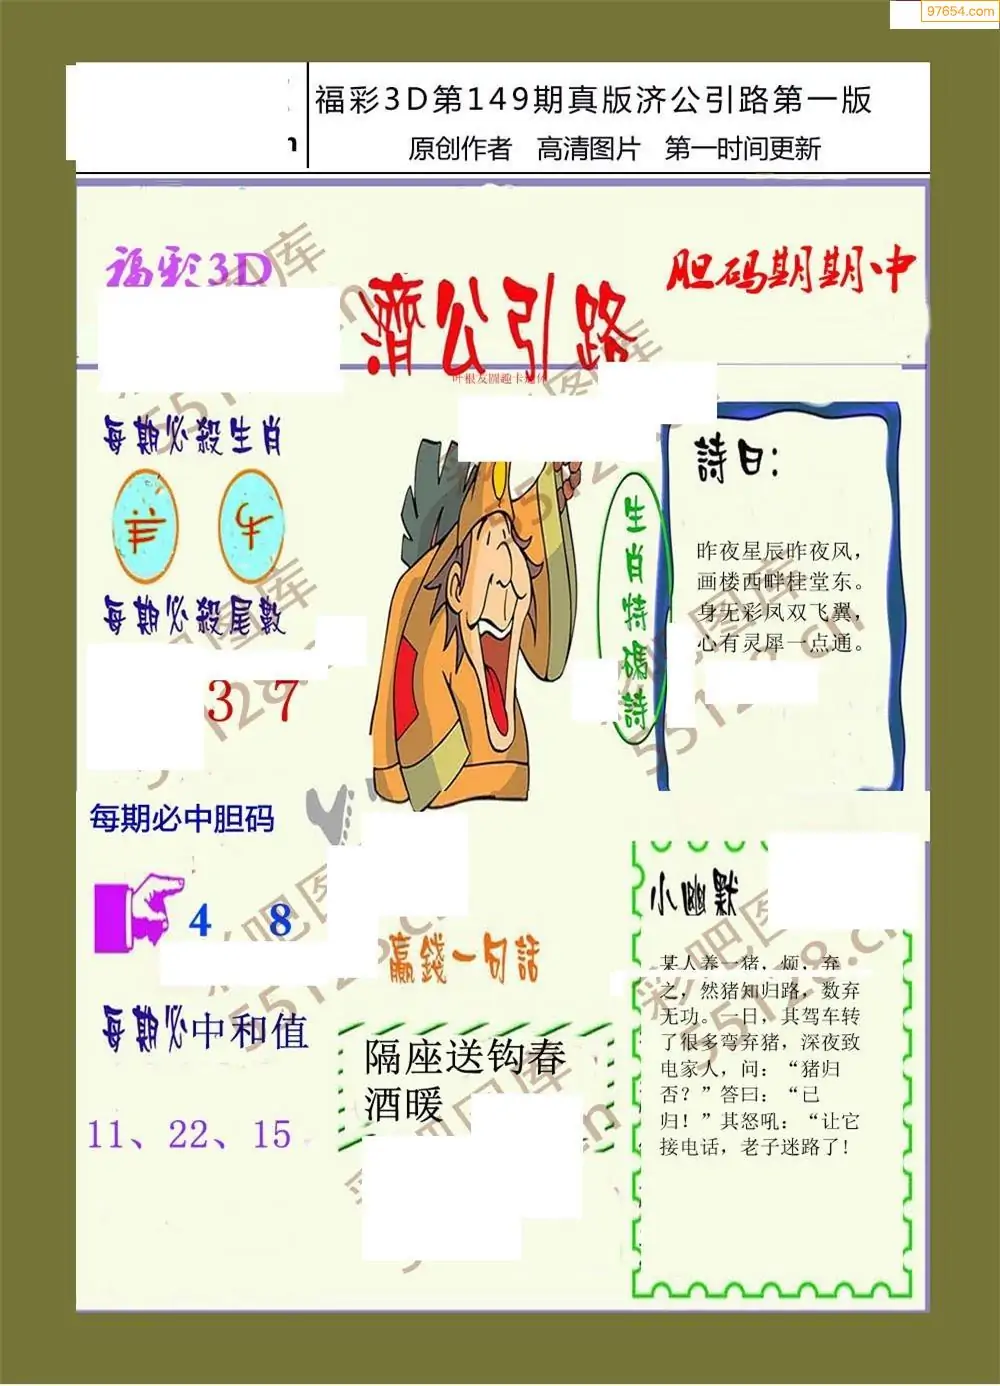 97654.com
福彩3D第149期真版济公引路第一版
原创作者 高清图片 第一时间更新
福彩3D
濟公引路
胆码期期中
叶根友圆趣卡通体
每期必殺生肖
羊 牛
每期必殺尾數
3 7
每期必中胆码
4 8
每期必中和值
11、22、15
生肖特碼詩
詩曰:
昨夜星辰昨夜风，
画楼西畔桂堂东。
身无彩凤双飞翼，
心有灵犀一点通。
贏錢一句話
隔座送钩春
酒暖
小幽默
某人养一猪，烦，弃
之，然猪知归路，数弃
无功。一日，其驾车转
了很多弯弃猪，深夜致
电家人，问：“猪归
否？”答曰：“已
归！”其怒吼：“让它
接电话，老子迷路了!
彩吧图库
55128.cn